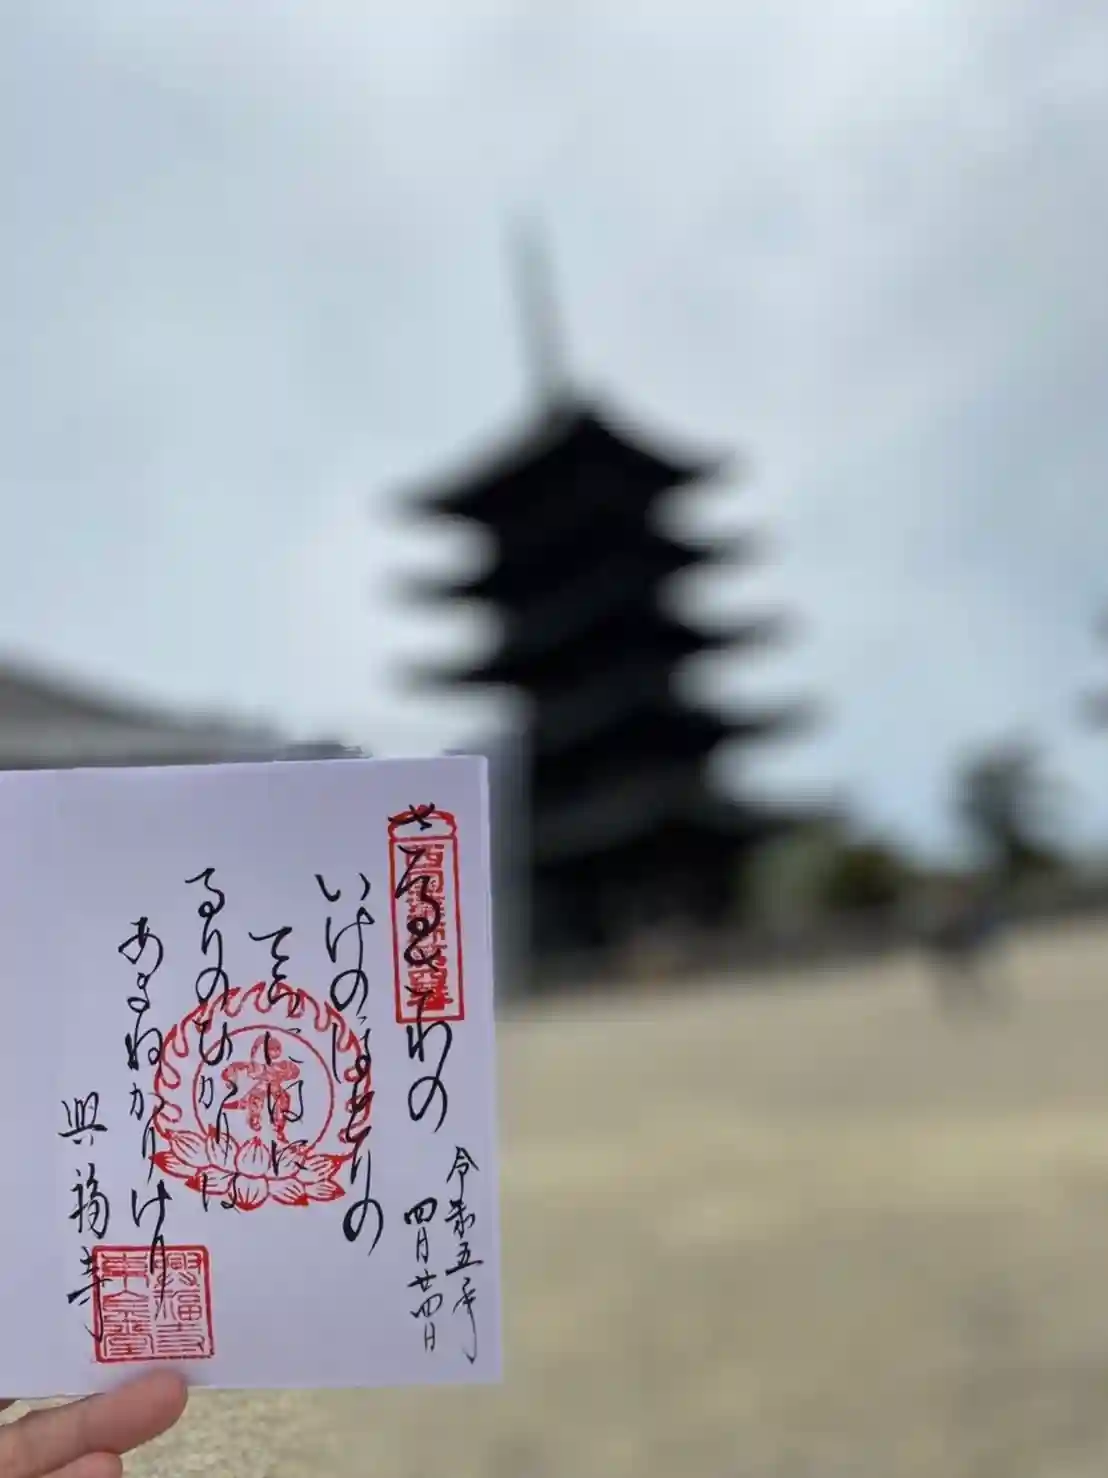 さるさわの
いけのほとりの
てらに
るりのひかりは
あまねかりけり
興福寺
令和五年
四月廿四日
興福寺
東金堂